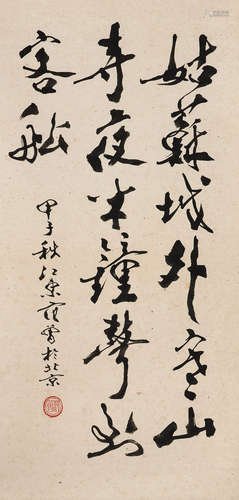 姑蘇城外寒山
寺夜半鐘聲到
客船
甲子秋江東范曾於北京